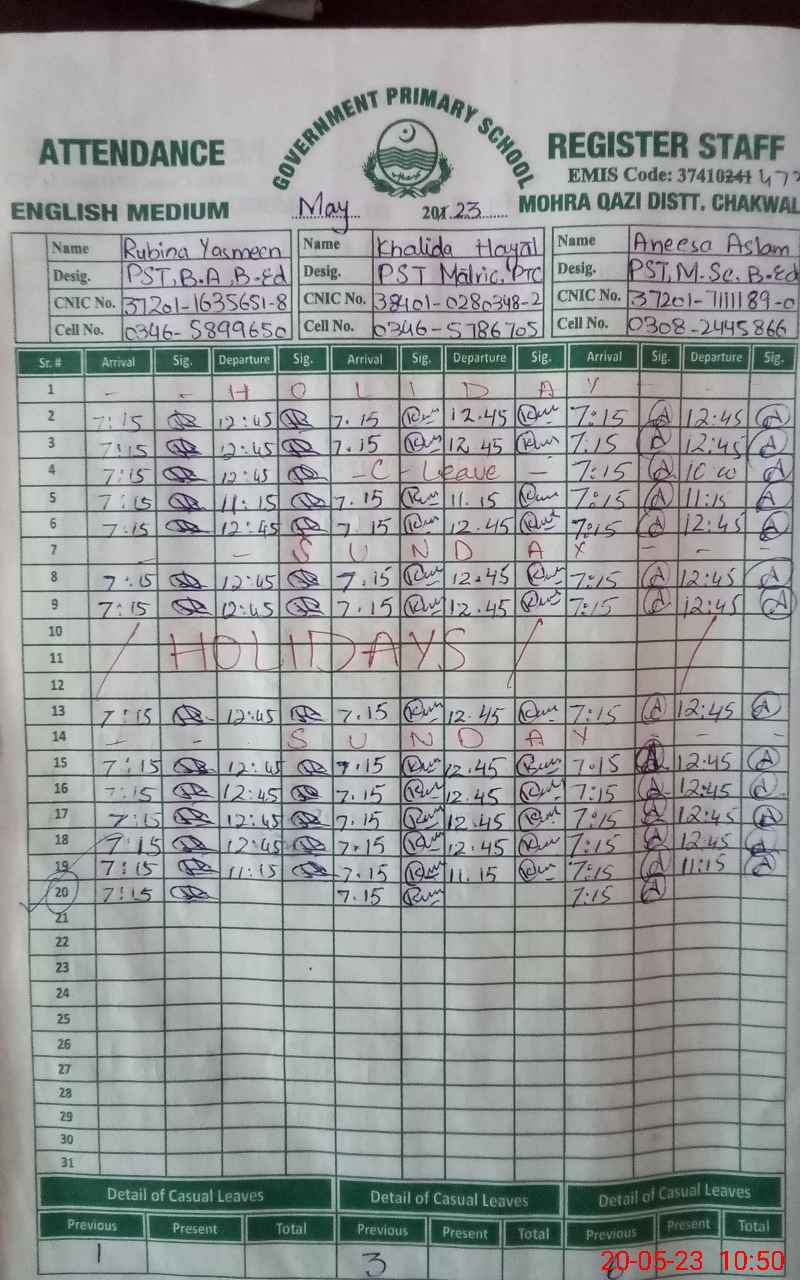 GOVERNMENT PRIMARY SCHOOL
ATTENDANCE REGISTER STAFF
EMIS Code: 37410241 472
ENGLISH MEDIUM May 201.23 MOHRA QAZI DISTT. CHAKWAL
Name Rubina Yasmeen Name Khalida Hayal Name Aneesa Aslam
Desig. PST, B.A, B-Ed Desig. PST Matric, PTC Desig. PST, M.Sc. B-Ed
CNIC No. 37201-1635651-8 CNIC No. 38401-0280348-2 CNIC No. 37201-7111189-0
Cell No. 0346-5899650 Cell No. 0346-5786705 Cell No. 0308-2445866
Sr. # Arrival Sig. Departure Sig. Arrival Sig. Departure Sig. Arrival Sig. Departure Sig.
1 - - H O L I D A Y - - -
2 7:15 12:45 7.15 12.45 7:15 A 12:45 A
3 7:15 12:45 7.15 12.45 7:15 A 12:45 A
4 7:15 12:45 - C - Leave - 7:15 A 10:00 A
5 7:15 11:15 7.15 11.15 7:15 A 11:15 A
6 7:15 12:45 7.15 12.45 7:15 A 12:45 A
7 - - S U N D A Y - - -
8 7:15 12:45 7.15 12.45 7:15 A 12:45 A
9 7:15 12:45 7.15 12.45 7:15 A 12:45 A
10
11 HOLIDAYS
12
13 7:15 12:45 7.15 12.45 7:15 A 12:45 A
14 - - S U N D A Y - - -
15 7:15 12:45 7.15 12.45 7:15 A 12:45 A
16 7:15 12:45 7.15 12.45 7:15 A 12:45 A
17 7:15 12:45 7.15 12.45 7:15 A 12:45 A
18 7:15 12:45 7.15 12.45 7:15 A 12:45 A
19 7:15 11:15 7.15 11.15 7:15 A 11:15 A
20 7:15 7.15 7:15 A
21
22
23
24
25
26
27
28
29
30
31
Detail of Casual Leaves Detail of Casual Leaves Detail of Casual Leaves
Previous Present Total Previous Present Total Previous Present Total
1 3
20-05-23 10:50